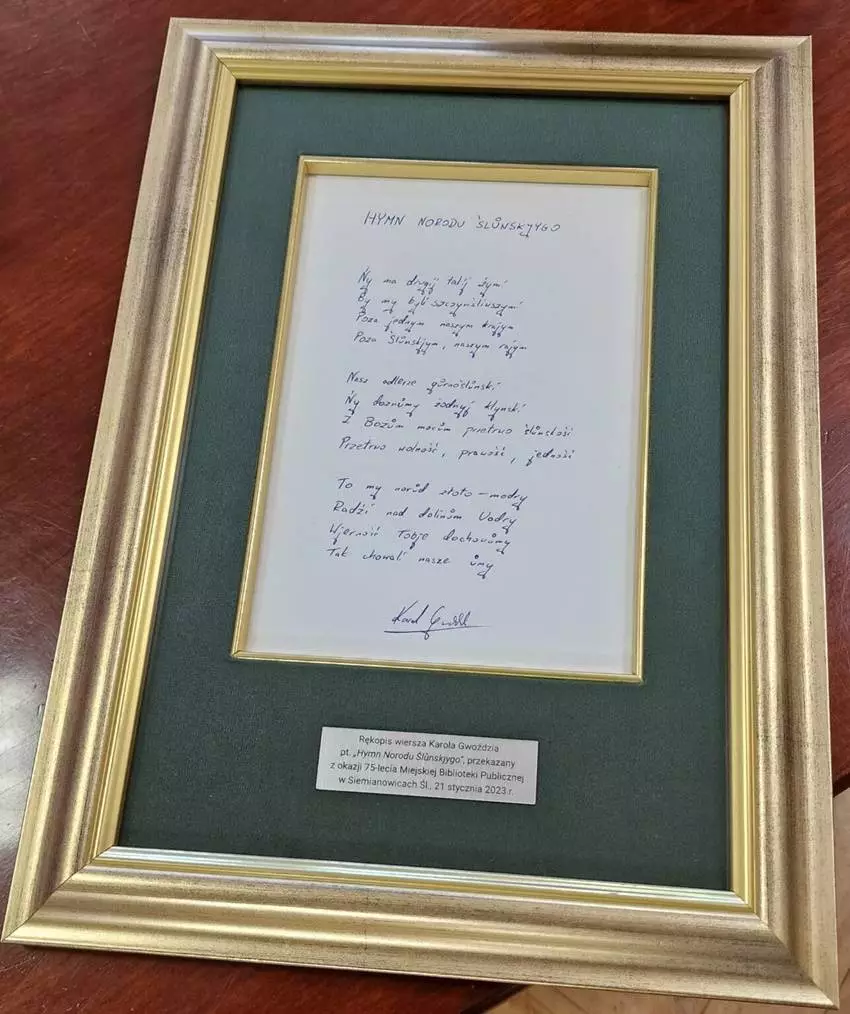 HYMN NORODU ŚLŮNSKJYGO
Ńy ma drugij takij źymi
By my byli szczynśliwszymi
Poza jednym naszym krajym
Poza Ślůnskjym, naszym rajym
Nasz adlerze gůrnoślůnski
Ńy doznůmy żodnyj klynski
Z Bożům mocům przetrwo ślůnskość
Przetrwo wolność, prawość, jedność
To my norůd złoto-modry
Radzi nad dolinům Uodry
Wjerność Tobje dochowůmy
Tak chowali nasze ůmy
Karol Gwóźdź
Rękopis wiersza Karola Gwoździa
pt. „Hymn Norodu Ślůnskjygo", przekazany
z okazji 75-lecia Miejskiej Biblioteki Publicznej
w Siemianowicach Śl., 21 stycznia 2023 r.